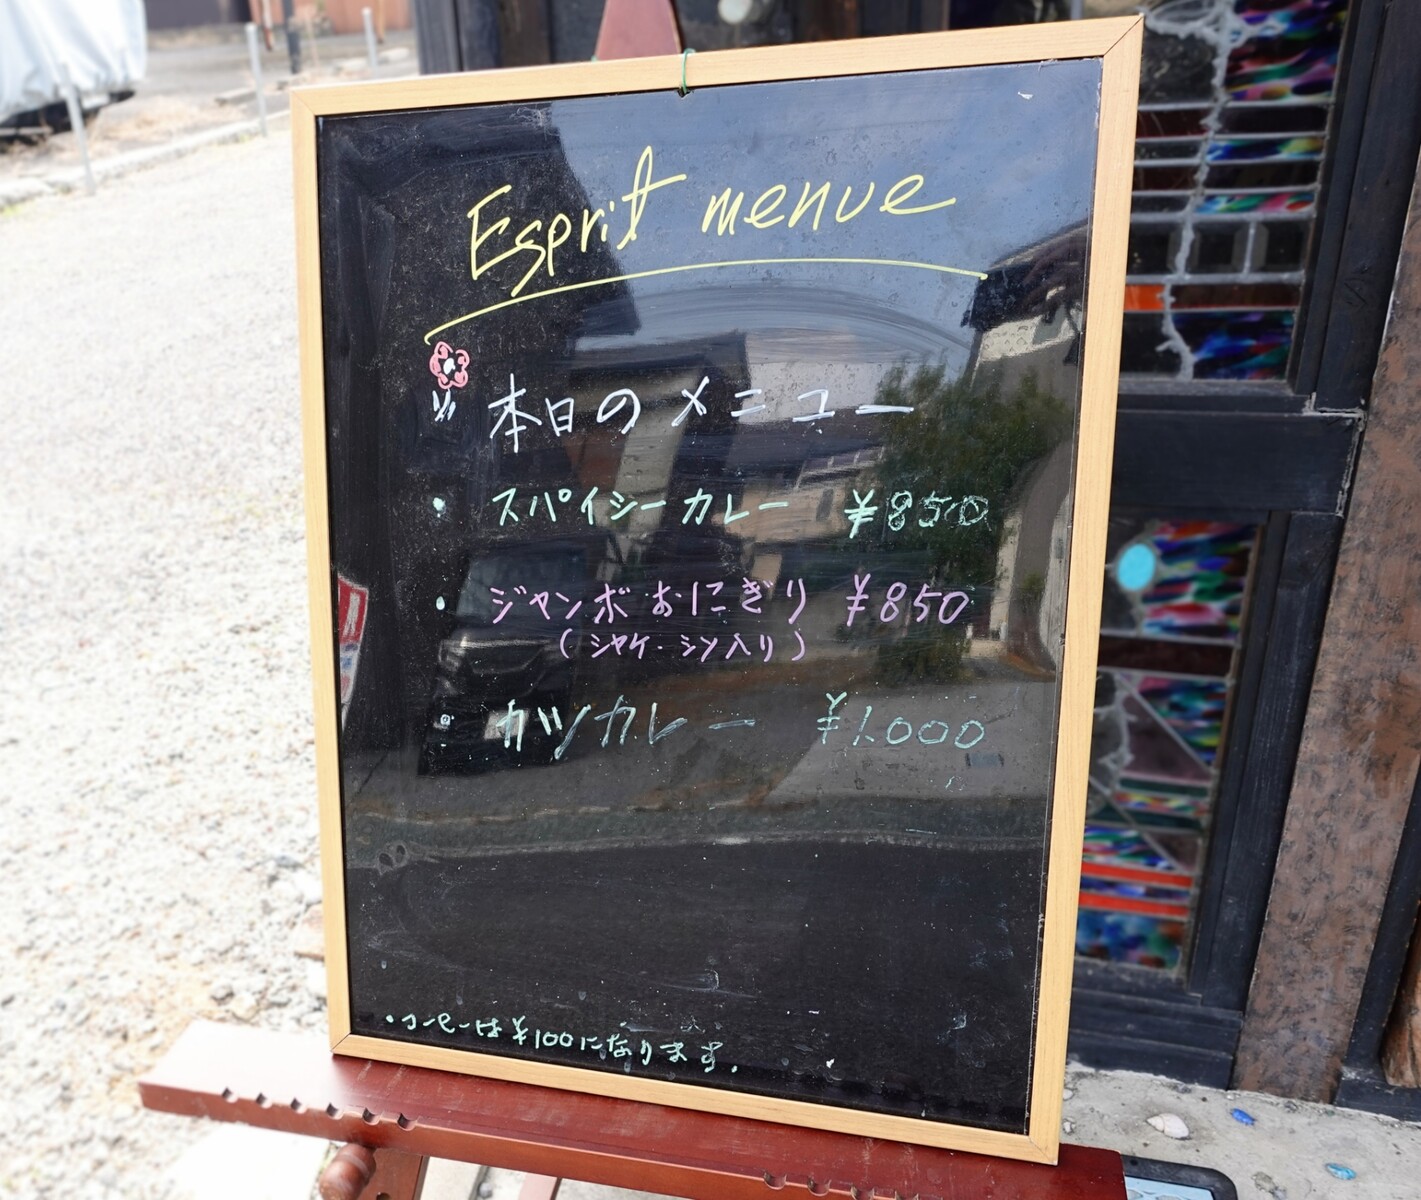 Esprit menue
本日のメニュー
・スパイシーカレー ¥850
・ジャンボおにぎり ¥850
(シャケ・シソ入り)
・カツカレー ¥1.000
・コーヒーは¥100になります.